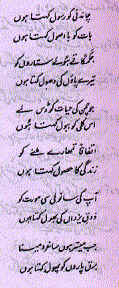 چاندنی کو رسول کہتا ہوں
بات کو با اصول کہتا ہوں
جگمگاتے ہوئے ستاروں کو
تیرے پاؤں کی دھول کہتا ہوں
جو چمن کی حیات کو ڈس لے
اس کلی کو ببول کہتا ہوں
اتفاقاً تمہارے ملنے کو
زندگی کا حصول کہتا ہوں
آپ کی سانولی سی مورت کو
ذوق یزداں کی بھول کہتا ہوں
جب میسر ہوں ساغر و مینا
برق پاروں کو پھول کہتا ہوں